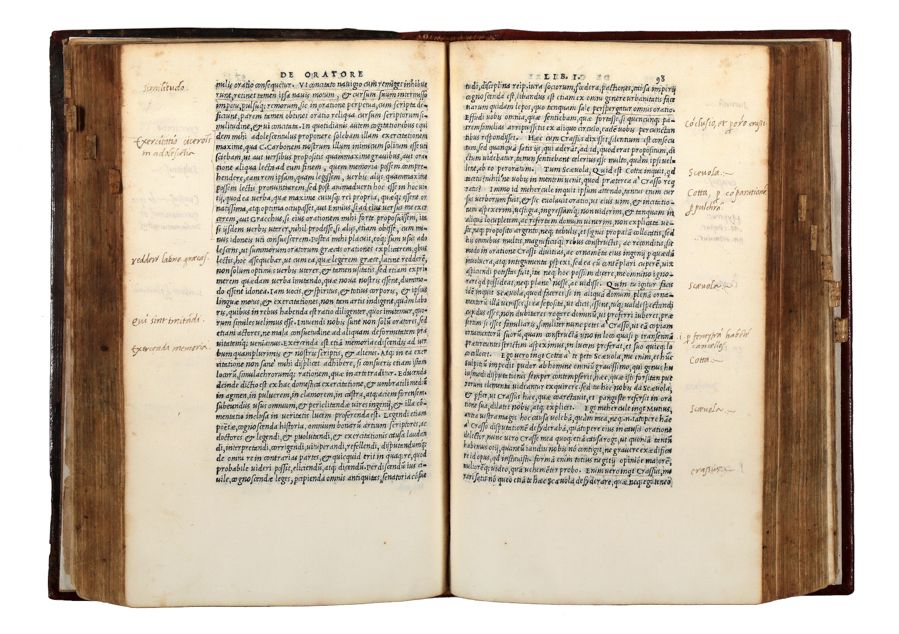 DE ORATORE
similis oratio consequetur. Vt concitato nauigio cum remiges inhibue
runt, retinet tamen ipsa nauis motum, & cursum suum intermisso
impetu, pulsuq; remorum, sic in oratione perpetua, cum scripta de
ficiunt, parem tamen obtinet oratio reliqua cursum scriptorum si
militudine, & ui concitata. In quotidianis autem cogitationibus equi
dem mihi adolescentulus proponere solebam illam exercitationem
maxime, qua C. Carbonem nostrum illum inimicum solitum esse uti
sciebam, ut aut uersibus propositis quammaxime grauibus, aut ora
tione aliqua lecta ad eum finem, quem memoria possem compre
hendere, eam rem ipsam, quam legissem, uerbis aliis quammaxime
possem lectis pronuntiarem, sed post animaduerti hoc esse in hoc ui
tij, quod ea uerba, quæ maxime cuiusq; rei propria, quæq; essent or
natissima, atq; optima occupasset, aut Ennius, si ad eius uersus me exer
cerem, aut Gracchus, si eius orationem mihi forte proposuissem, ita
si iisdem uerbis uterer, nihil prodesse, si aliis, etiam obesse, cum mi
nus idoneis uti consuescerem. postea mihi placuit, eoq; sum usus ado
lescens, ut summorum oratorum græcas orationes explicarem, quibus
lectis, hoc assequebar, ut cum ea, quæ legerem græce, latine redderem,
non solum optimis uerbis uterer, & tamen usitatis, sed etiam expri
merem quædam uerba imitando, quæ noua nostris essent, dummo
do essent idonea. Iam uocis, & spiritus, & totius corporis, & ipsius
linguæ motus, & exercitationes, non tam artis indigent, quàm labo
ris, quibus in rebus habenda est ratio diligenter, quos imitemur, quo
rum similes uelimus esse. Intuendi nobis sunt non solum oratores, sed
etiam actores, ne mala consuetudine ad aliquam deformitatem pra
uitatemq; ueniamus. Exercenda est etiam memoria ediscendis ad uer
bum quamplurimis & nostris scriptis, & alienis. Atq; in ea exer
citatione non sane mihi displicet adhibere, si consueris etiam istam
locorum, simulachrorumq; rationem, quæ in arte traditur. Educenda
deinde dictio est ex hac domestica exercitatione, & umbratili medium
in agmen, in puluerem, in clamorem, in castra, atq; aciem forensem.
subeundus usus omnium, & periclitandæ uires ingenij, & illa com
mentatio inclusa in ueritatis lucem proferenda est. Legendi etiam
poetæ, cognoscenda historia, omnium bonarum artium scriptores, ac
doctores & legendi, & peruolutandi, & exercitationis causa laudan
di, interpretandi, corrigendi, uituperandi, refellendi, disputandumq;
de omni re in contrarias partes, & quicquid erit in quaq; re, quod
probabile uideri possit, eliciendum, atq; dicendum. Perdiscendum ius ci
uile, cognoscendæ leges, percipienda omnis antiquitas, senatoria consue
similitudo.
Exercitatio ciceronis
in adolescentia
reddere latine græcas.
Qui sint imitandi.
Exercenda memoria.
LIB. I. 98
tudo, disciplina reip. iura sociorum, fœdera, pactiones, causa imperij
cognoscenda est, libandus est etiam ex omni genere urbanitatis faceti
arum quidam lepos, quo tanquam sale perspergatur omnis oratio.
Effudi uobis omnia, quæ sentiebam, quæ fortasse, si quencunq; pa
tremfamilias arripuissetis ex aliquo circulo, eadem uobis percunctan
tibus respondisset. Hæc cum Crassus dixisset, silentium est consecu
tum, sed quanquam satis iis, qui aderant, ad id, quod erat propositum, di
ctum uidebatur, tamen sentiebant celerius esse multo, quàm ipsi uel
lent, ab eo peroratum. Tum Scæuola, Quid est Cotta inquit, quid
tacetis? nihil ne uobis in mentem uenit, quod præterea a Crasso req
ratis? Immo id mehercule inquit ipsum attendo, tantus enim cur
sus uerborum fuit, & sic euolauit oratio, ut eius uim, & incitatio
nem aspexerim, uestigia, ingressumq; uix uiderim, & tanquam in
aliquam locupletem, ac refertam domum uenerim, non explicata ueste
neq; proposito argento, neq; tabulis, et signis propalam collocatis, sed
his omnibus multis, magnificisq; rebus constructis, ac reconditis, sic
modo in oratione Crassi diuitias, ac ornamenta eius ingenij per quædam
inuolucra, atq; integumenta perspexi, sed ea cum contemplari cuperem, uix
aspiciendi potestas fuit, ita neq; hoc possum dicere, me omnino igno
rare quid possideat, neq; plane nosse, ac uidisse. Quin tu igitur facis
idem inquit Scæuola, quod faceres, si in aliquam domum plenam orna
mentorum uillamue uenisses, si ea seposita, ut dicis, essent, tu, ualde spectandi
cupidus esses, non dubitares rogare dominum, ut proferri iuberet, præ
sertim si esset familiaris, similiter nunc petes a Crasso, ut eam copiam
ornamentorum suorum, quam constructam uno in loco quasi per transennam
prætereuntes strictim aspeximus, in lucem proferat, et suo quicq; loco
collocet. Ego uero inquit Cotta a te peto Scæuola, me enim, & hunc
Sulpitium impedit pudor ab homine omnium grauissimo, qui genus huius
modi disputationis semper contempserit, hæc, quæ isti forsitan pue
rorum elementa uideantur, exquirere, sed tu hoc nobis da Scæuola,
& perfice, ut Crassus hæc, quæ coarctauit, et peranguste refersit in ora
tione sua, dilatet nobis, atq; explicet. Ego mehercule inquit Mutius,
antea uestra magis hoc causa uolebam, quàm mea, neq; enim tantopere hanc
a Crasso disputationem desyderabam, quantopere eius in causis oratione
delector, nunc uero Crasse mea quoq; etiam causa rogo, ut quoniam tantum
habemus ocij, quantum iamdiu nobis non contigit, ne graueris exædifica
re id opus, quod instituisti. formam enim totius negotij opinione meliorem,
maioremq; uideo, quam uehementer probo. Enimuero inquit Crassus, mi
rari satis non queo etiam te hæc Scæuola desyderare, quæ neq; ego teneo
Scæuola.
Cotta, p comparatione
pulchra
Scæuola.
Cotta.
Scæuola.
crassus.